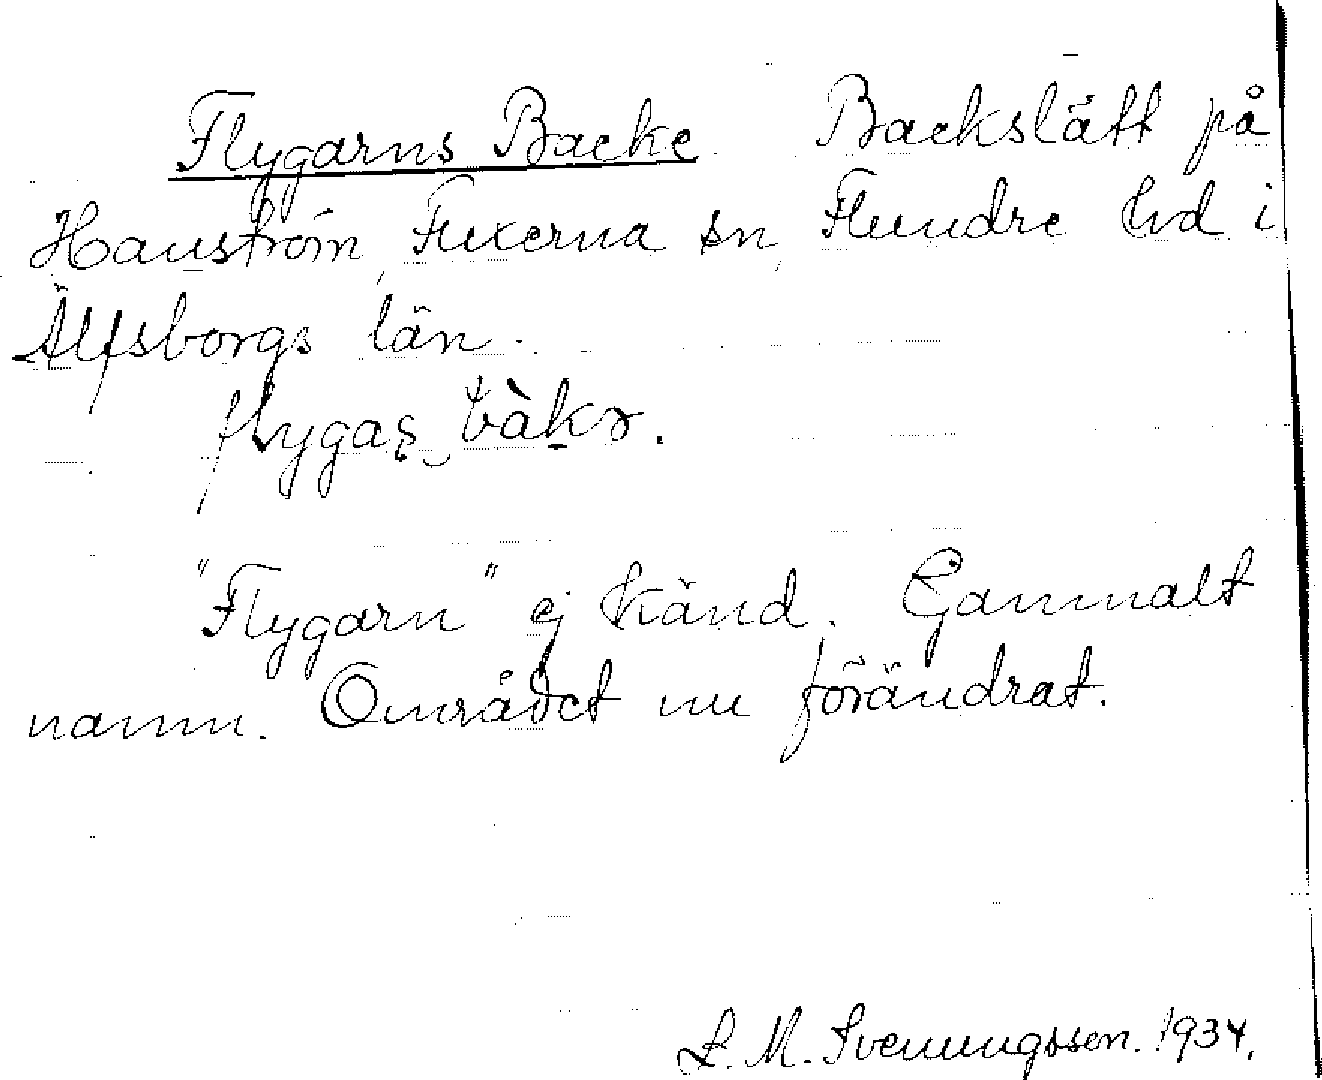 Flygarns Backe. Backslätt på
Hanström, Fuxerna sn, Flundre hd i
Älfsborgs län.
flygaş bàkə.
"Flygarn" ej känd. Gammalt
namn. Området nu förändrat.
L. M. Svenungsson. 1934.